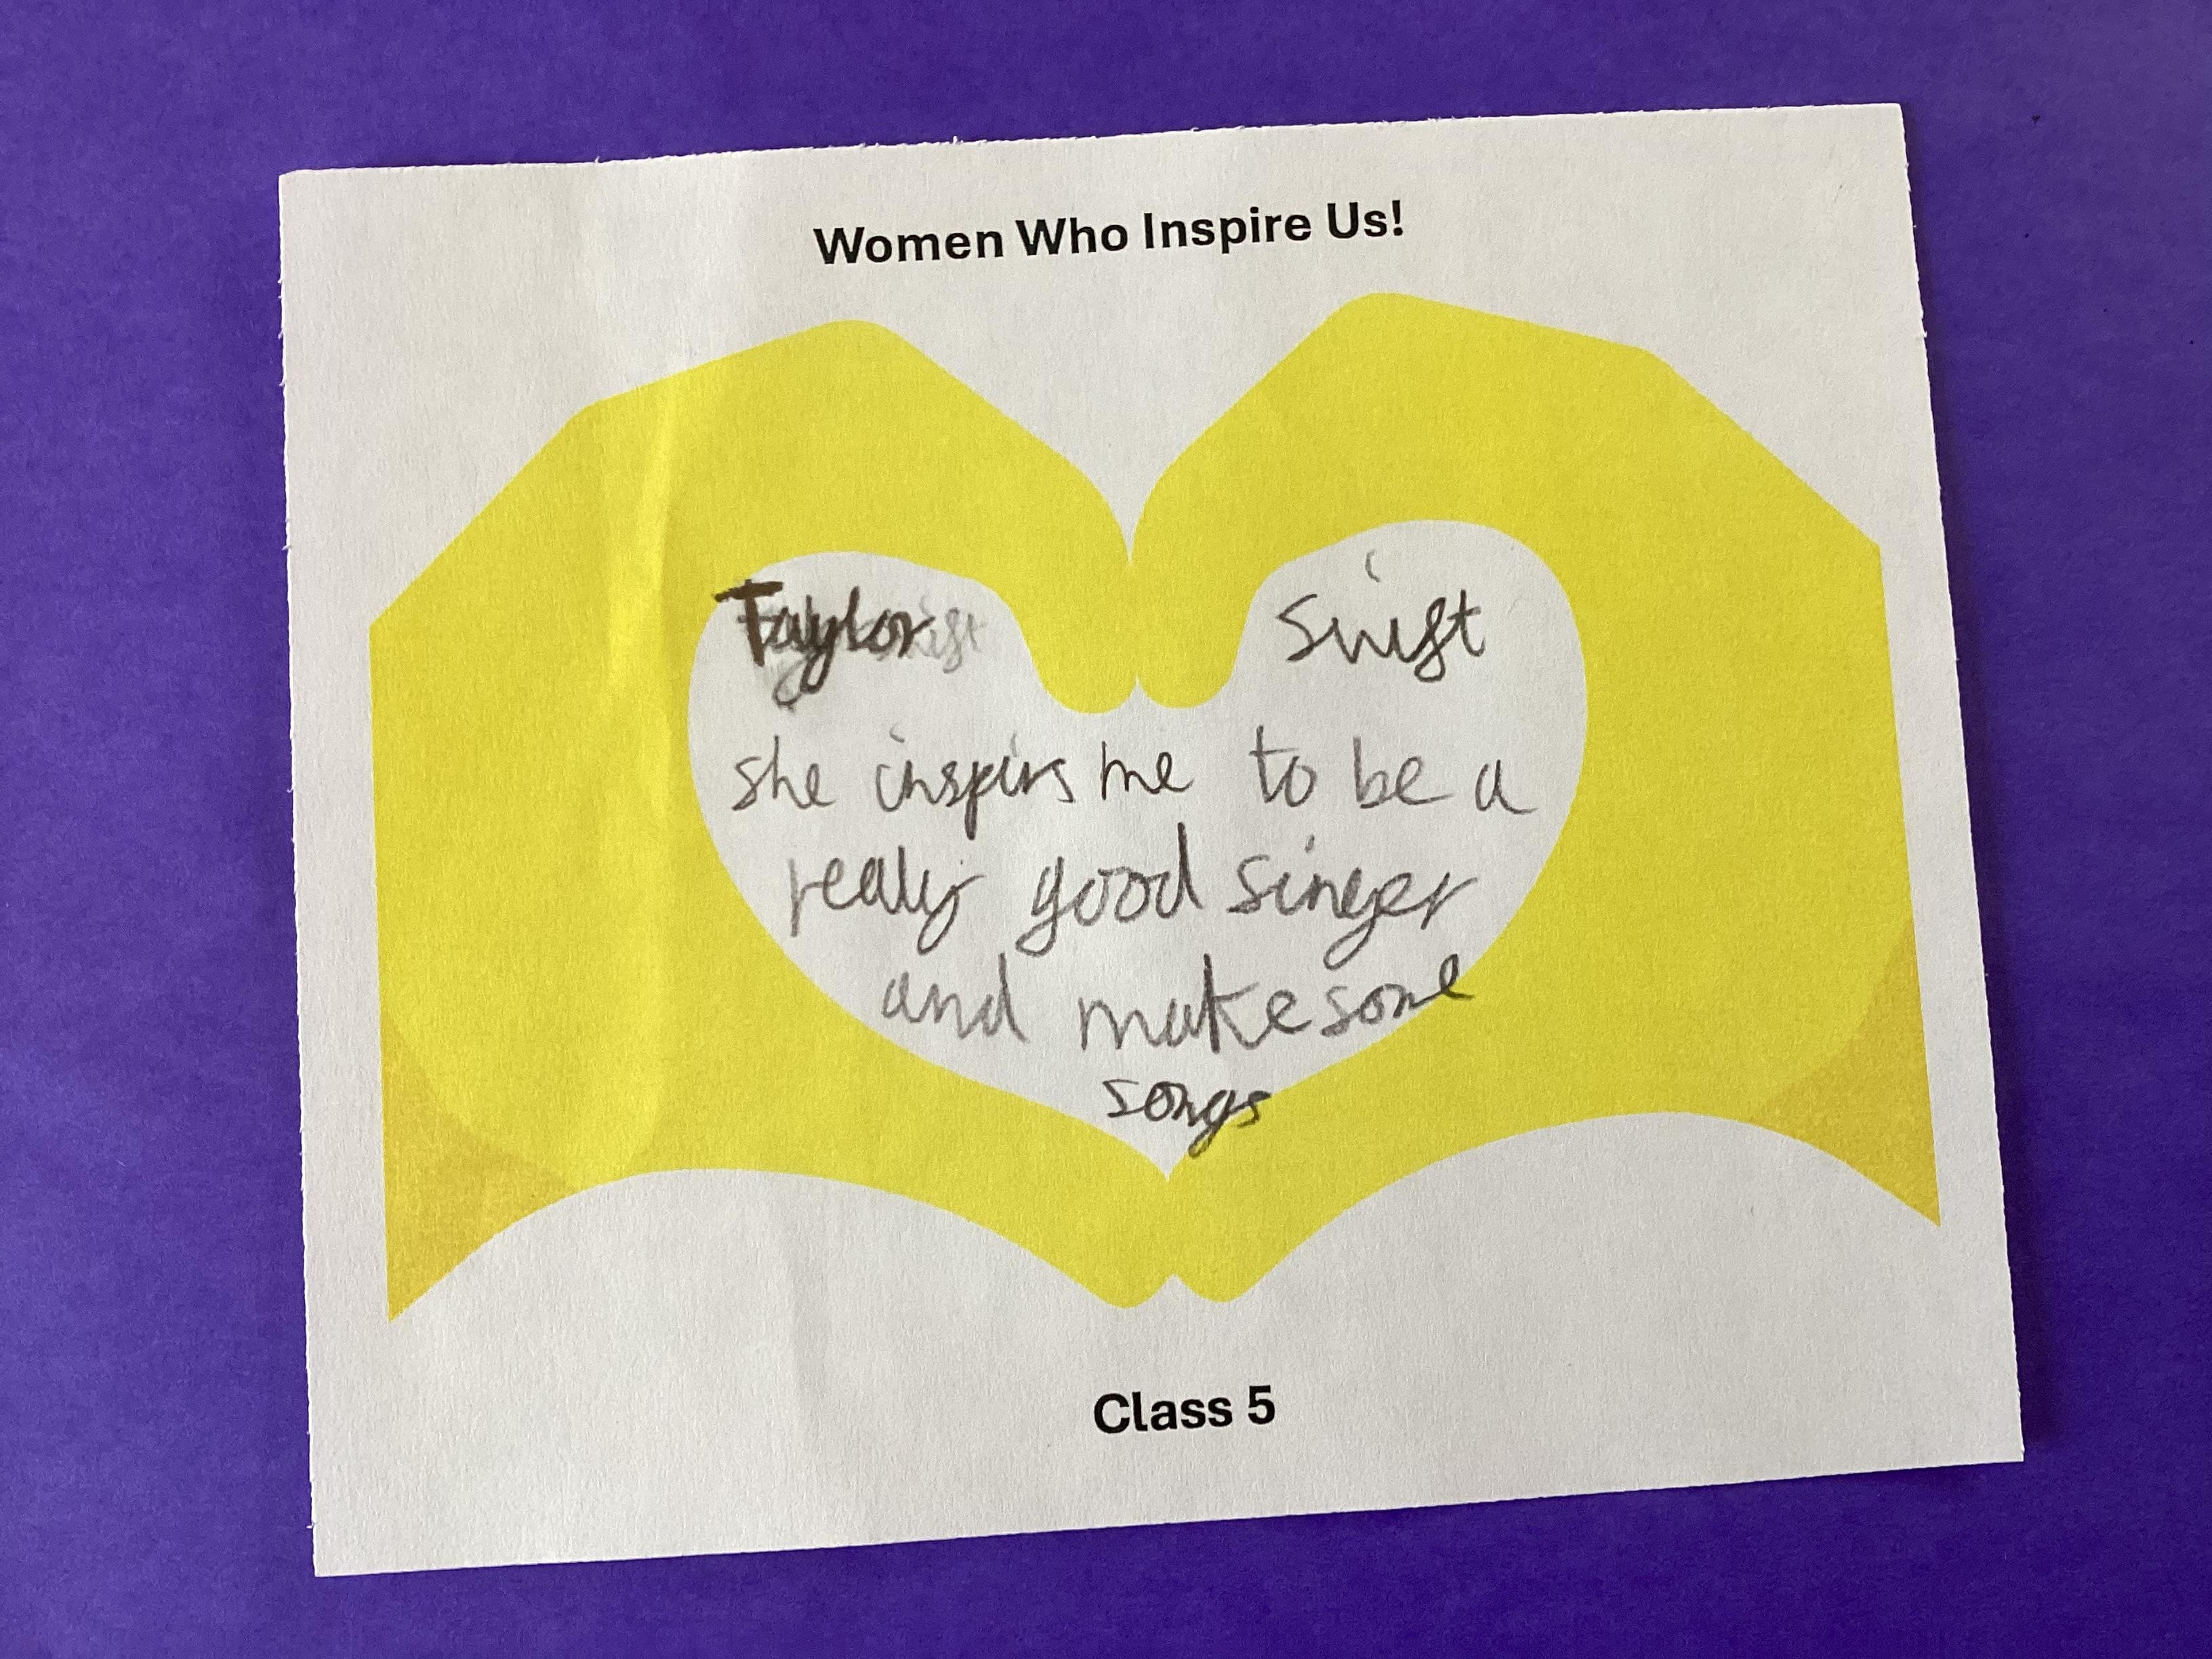 Women Who Inspire Us!
Taylor Swift
she inspirs me to be a
realy good singer
and make some
songs
Class 5